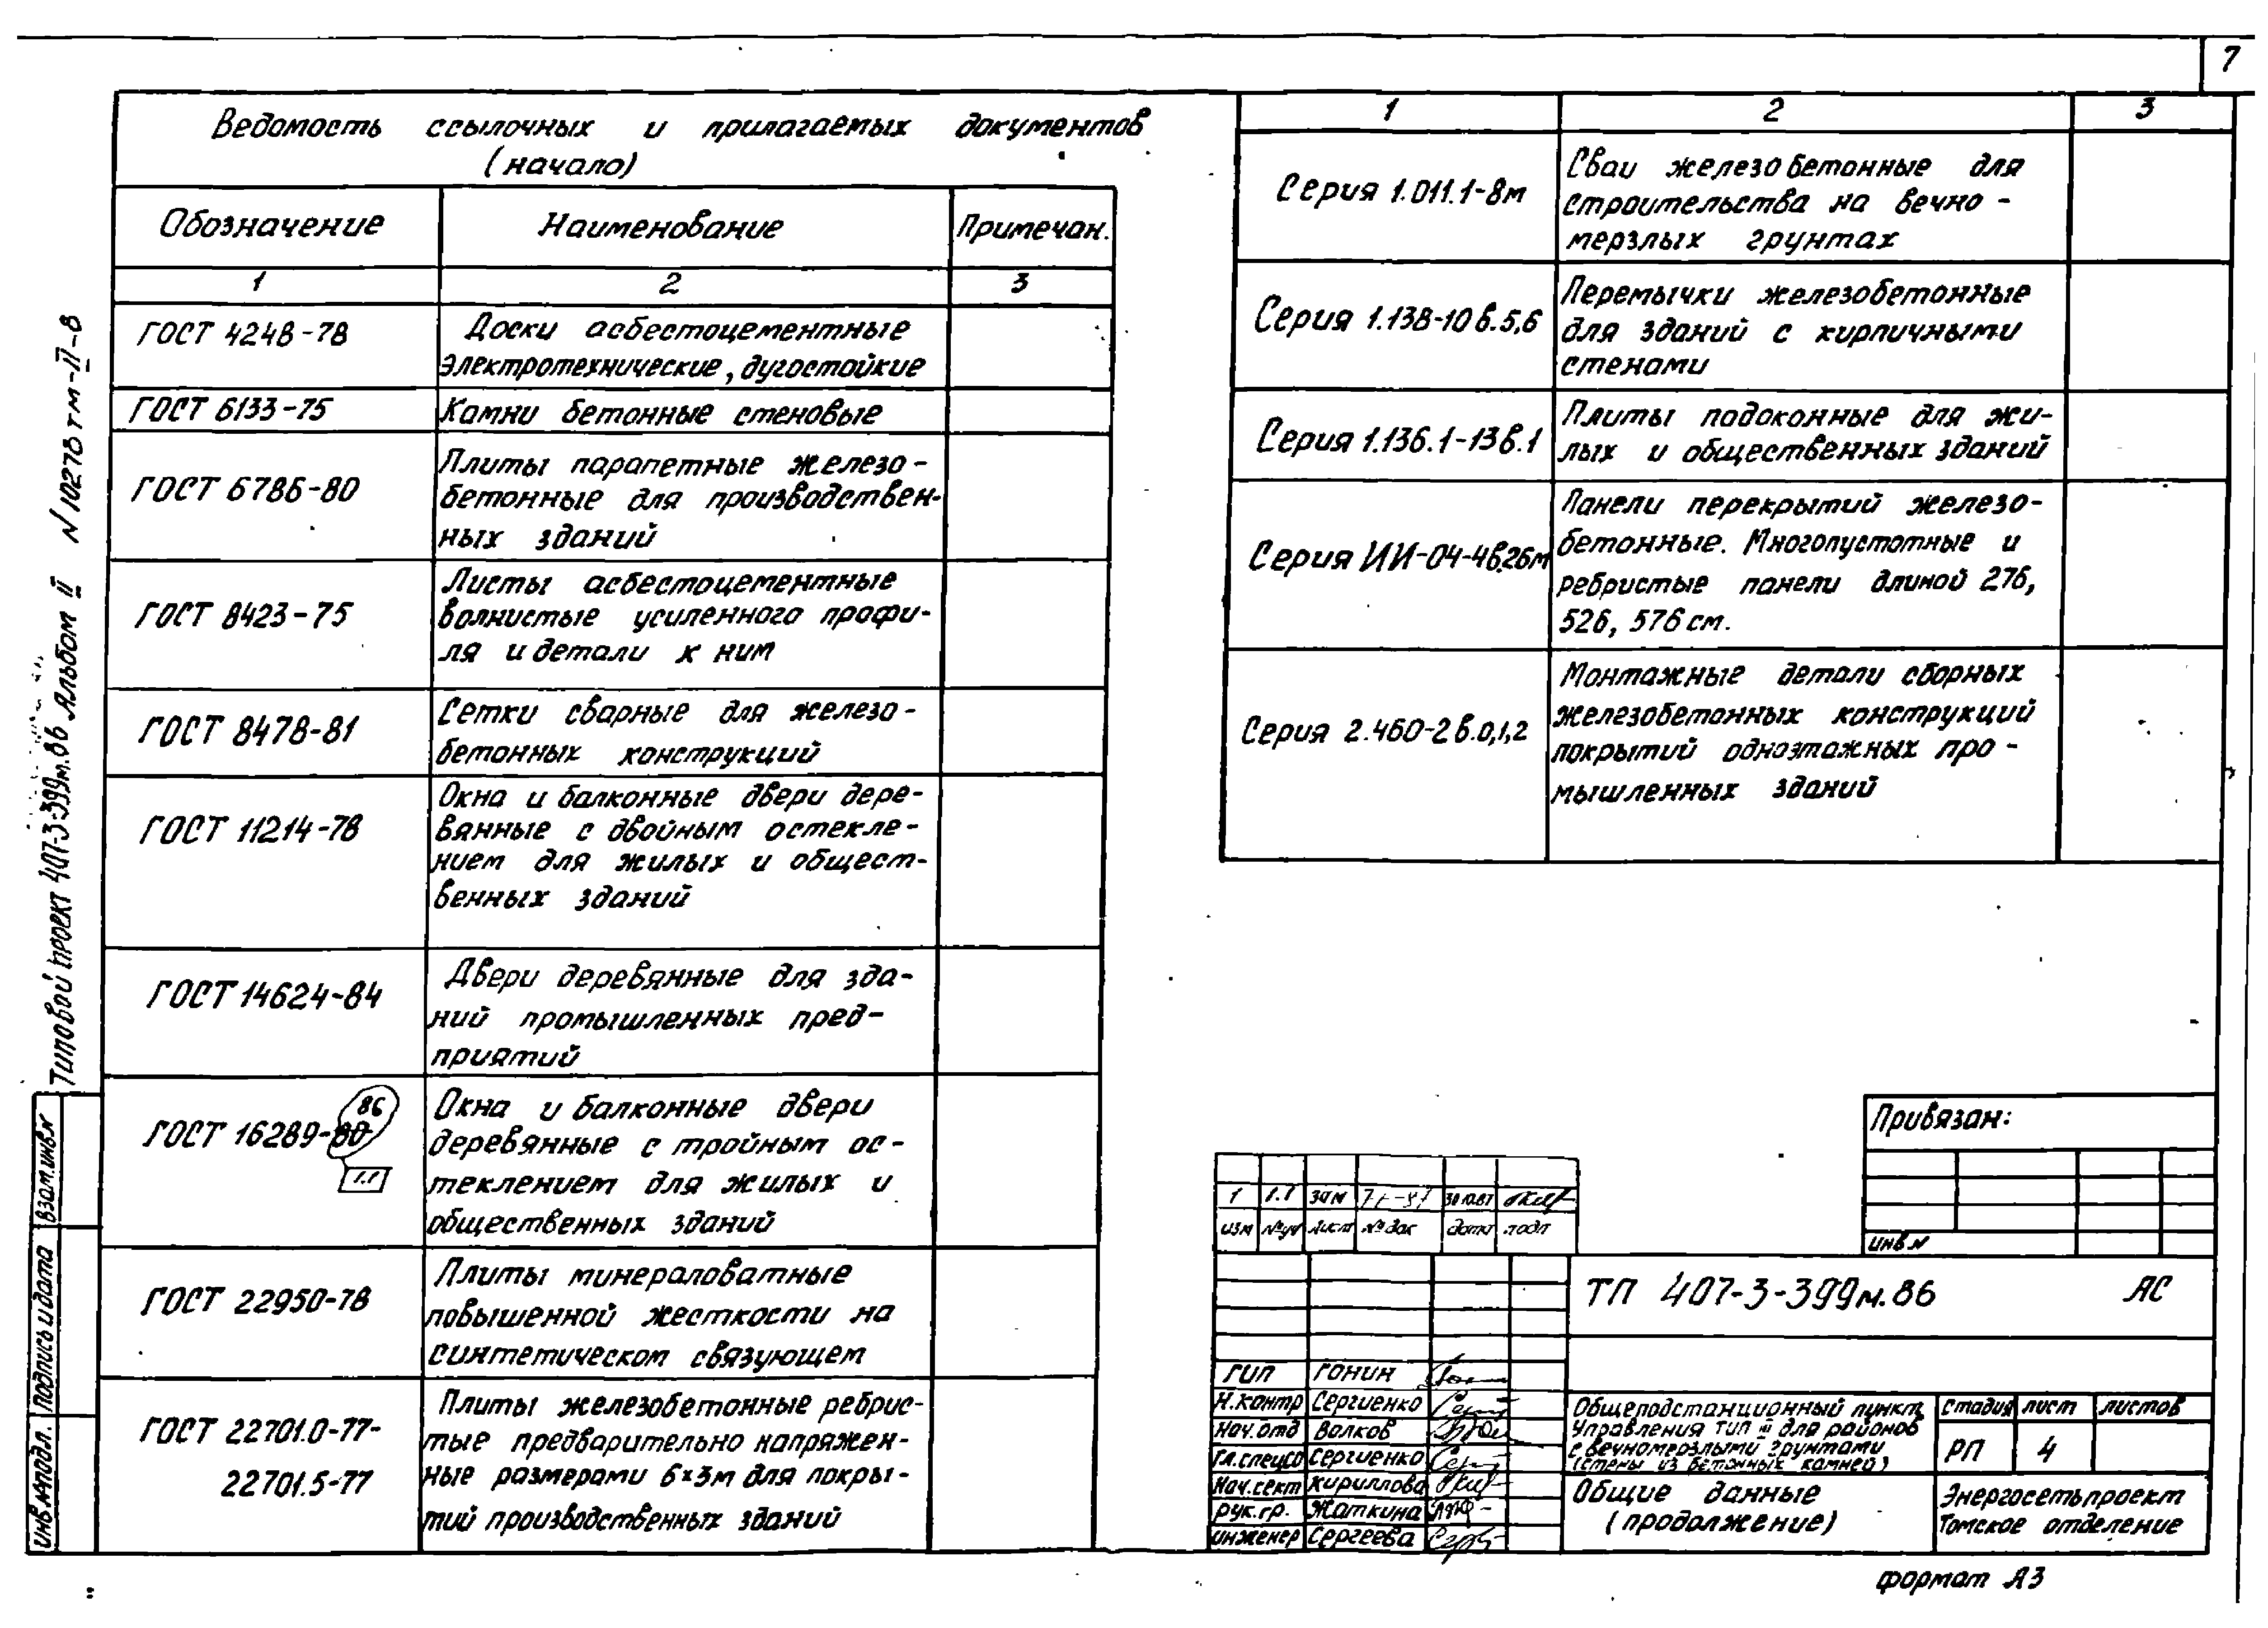 7
Ведомость ссылочных и прилагаемых документов
(начало)
Обозначение Наименование Примечан.
1 2 3
ГОСТ 4248-78 Доски асбестоцементные
электротехнические, дугостойкие
ГОСТ 6133-75 Камни бетонные стеновые
ГОСТ 6786-80 Плиты парапетные железо-
бетонные для производствен-
ных зданий
ГОСТ 8423-75 Листы асбестоцементные
волнистые усиленного профи-
ля и детали к ним
ГОСТ 8478-81 Сетки сварные для железо-
бетонных конструкций
ГОСТ 11214-78 Окна и балконные двери дере-
вянные с двойным остекле-
нием для жилых и общест-
венных зданий
ГОСТ 14624-84 Двери деревянные для зда-
ний промышленных пред-
приятий
86
ГОСТ 16289-80 Окна и балконные двери
деревянные с тройным ос-
1.1
теклением для жилых и
общественных зданий
ГОСТ 22950-78 Плиты минераловатные
повышенной жесткости на
синтетическом связующем
ГОСТ 22701.0-77- Плиты железобетонные ребрис-
тые предварительно напряжен-
22701.5-77 ные размерами 6×3м для покры-
тий производственных зданий
1 2 3
Серия 1.011.1-8м Сваи железобетонные для
строительства на вечно-
мерзлых грунтах
Серия 1.138-10 в.5,6 Перемычки железобетонные
для зданий с кирпичными
стенами
Серия 1.136.1-13 в.1 Плиты подоконные для жи-
лых и общественных зданий
Серия ИИ-04-4в.26м Панели перекрытий железо-
бетонные. Многопустотные и
ребристые панели длиной 276,
526, 576 см.
Серия 2.460-2 в.0,1,2 Монтажные детали сборных
железобетонных конструкций
покрытий одноэтажных про-
мышленных зданий
Типовой проект 407-3-399м.86 Альбом II N 10278тм-II-8
Взам.инв.N
Подпись и дата
Инв.Nподл.
Привязан:
инв.N
1 1.1 зам 30.10.87
изм №уч лист №док дата подп
ТП 407-3-399м.86 АС
ГИП Гонин
Н.контр Сергиенко
Нач.отд Волков
Гл.спецсо Сергиенко
Нач.сект Кириллова
рук.гр. Жаткина
инженер Сергеева
Общеподстанционный пункт
управления тип III для районов
с вечномерзлыми грунтами
(стены из бетонных камней)
Стадия лист листов
РП 4
Общие данные
(продолжение)
Энергосетьпроект
Томское отделение
формат А3